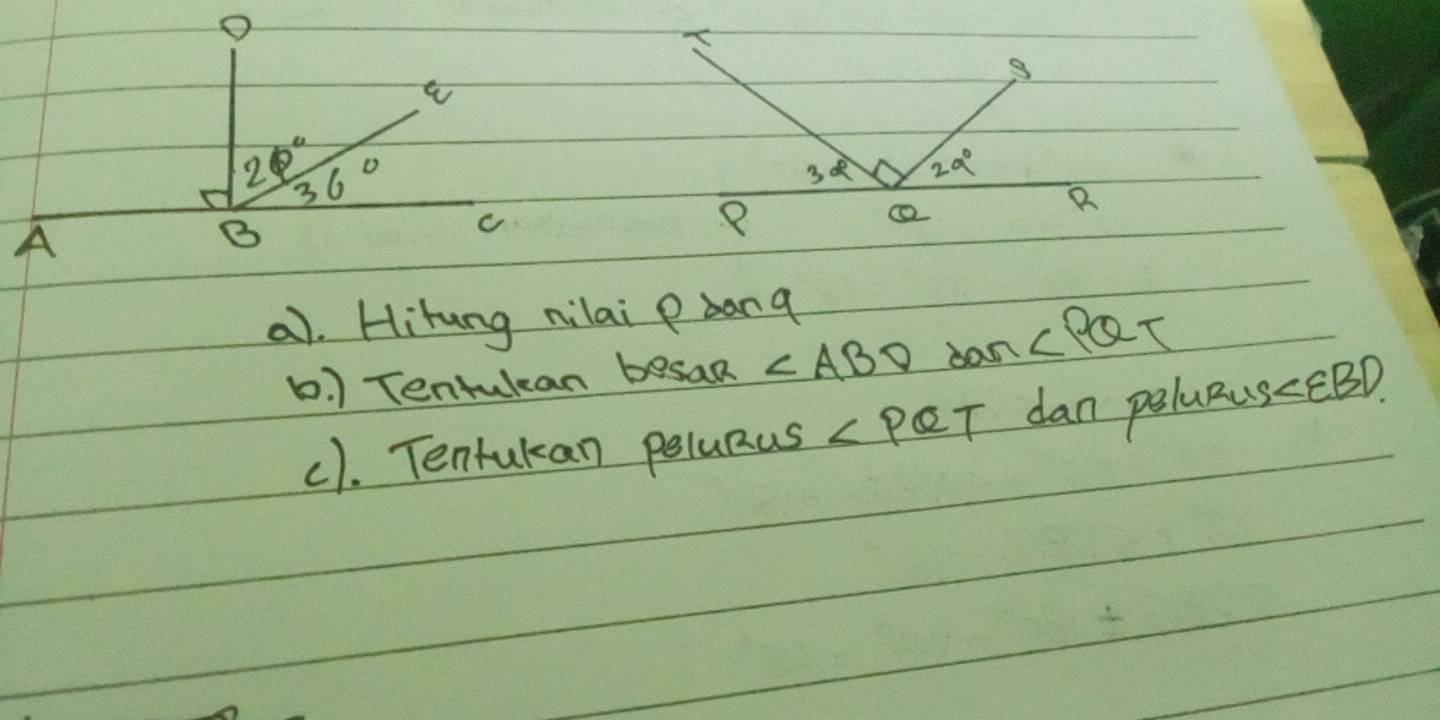 D
E
2p°
36°
A
B
C
T
S
3q
2q°
P
Q
R
a). Hitung nilai p dan q
b.) Tentukan besar < ABD dan < PQT
c). Tentukan pelurus < PQT dan pelurus < EBD.